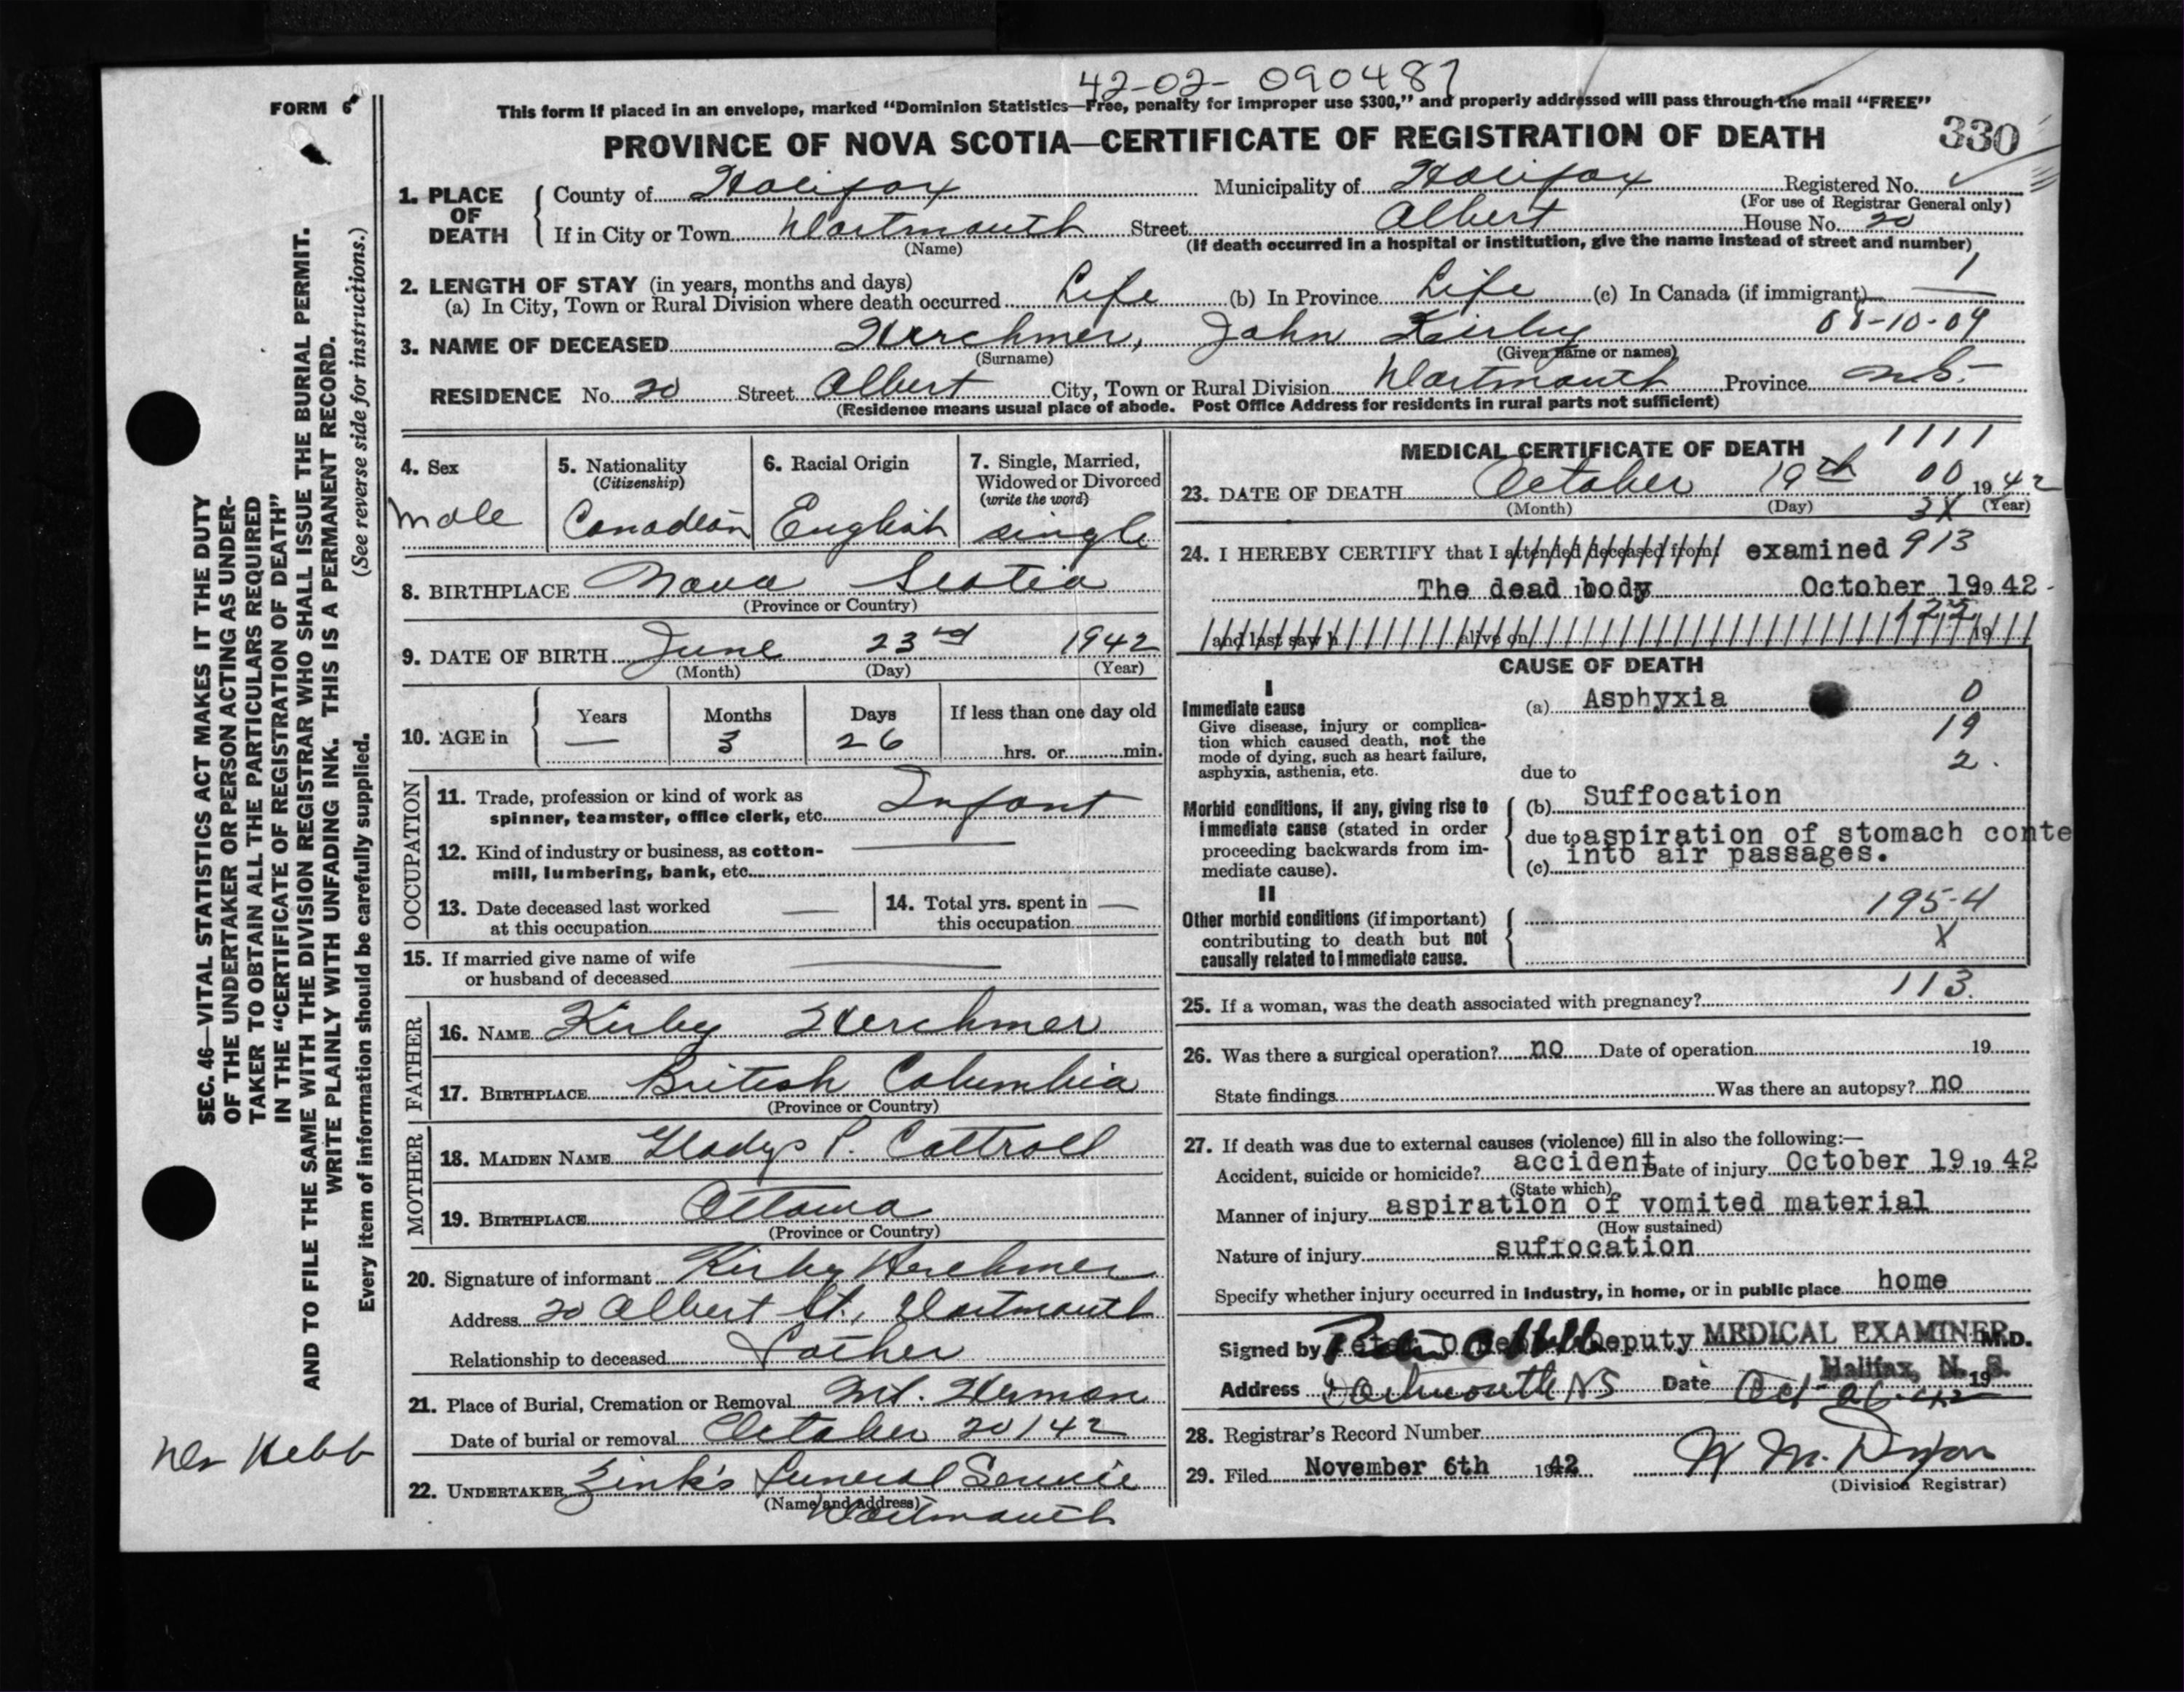 42-02- 090487
FORM 6
This form if placed in an envelope, marked "Dominion Statistics—Free, penalty for improper use $300," and properly addressed will pass through the mail "FREE"
PROVINCE OF NOVA SCOTIA—CERTIFICATE OF REGISTRATION OF DEATH
330
1. PLACE OF DEATH
County of Halifax Municipality of Halifax Registered No.
(For use of Registrar General only)
If in City or Town Dartmouth Street Albert House No. 20
(Name) (If death occurred in a hospital or institution, give the name instead of street and number)
2. LENGTH OF STAY (in years, months and days)
(a) In City, Town or Rural Division where death occurred Life (b) In Province Life (c) In Canada (if immigrant)
3. NAME OF DECEASED Herchmer, John Kirby 08-10-09
(Surname) (Given name or names)
RESIDENCE No. 20 Street Albert City, Town or Rural Division Dartmouth Province N.S.
(Residence means usual place of abode. Post Office Address for residents in rural parts not sufficient)
4. Sex
male
5. Nationality
(Citizenship)
Canadian
6. Racial Origin
English
7. Single, Married,
Widowed or Divorced
(write the word)
single
8. BIRTHPLACE Nova Scotia
(Province or Country)
9. DATE OF BIRTH June 23rd 1942
(Month) (Day) (Year)
10. AGE in
Years Months Days If less than one day old
— 3 26 hrs. or min.
OCCUPATION
11. Trade, profession or kind of work as
spinner, teamster, office clerk, etc. Infant
12. Kind of industry or business, as cotton-
mill, lumbering, bank, etc. —
13. Date deceased last worked
at this occupation —
14. Total yrs. spent in
this occupation —
15. If married give name of wife
or husband of deceased —
FATHER
16. NAME Kirby Herchmer
17. BIRTHPLACE British Columbia
(Province or Country)
MOTHER
18. MAIDEN NAME Gladys P. Cattroll
19. BIRTHPLACE Ottawa
(Province or Country)
20. Signature of informant Kirby Herchmer
Address 20 Albert St., Dartmouth
Relationship to deceased Father
21. Place of Burial, Cremation or Removal Mt. Hermon
Date of burial or removal October 20/42
22. UNDERTAKER Zink's Funeral Service
(Name and address)
Dartmouth
MEDICAL CERTIFICATE OF DEATH
1111
23. DATE OF DEATH October 19th 00 1942
(Month) (Day) (Year)
3X
24. I HEREBY CERTIFY that I attended deceased from examined 913
The dead body October 19 1942
and last saw h alive on 19
125
CAUSE OF DEATH
I
Immediate cause
Give disease, injury or complica-
tion which caused death, not the
mode of dying, such as heart failure,
asphyxia, asthenia, etc.
(a) Asphyxia
0
19
2.
due to
Morbid conditions, if any, giving rise to
immediate cause (stated in order
proceeding backwards from im-
mediate cause).
(b) Suffocation
due to aspiration of stomach conte
(c) into air passages.
II
Other morbid conditions (if important)
contributing to death but not
causally related to immediate cause.
195-4
X
113.
25. If a woman, was the death associated with pregnancy?
26. Was there a surgical operation? no Date of operation 19
State findings Was there an autopsy? no
27. If death was due to external causes (violence) fill in also the following:—
Accident, suicide or homicide? accident Date of injury October 19 1942
(State which)
Manner of injury aspiration of vomited material
(How sustained)
Nature of injury suffocation
Specify whether injury occurred in Industry, in home, or in public place home
Signed by Deputy MEDICAL EXAMINER M.D.
Halifax, N. S.
Address Dartmouth NS Date Oct 26 42 19
28. Registrar's Record Number
29. Filed November 6th 1942
(Division Registrar)
SEC. 46—VITAL STATISTICS ACT MAKES IT THE DUTY
OF THE UNDERTAKER OR PERSON ACTING AS UNDER-
TAKER TO OBTAIN ALL THE PARTICULARS REQUIRED
IN THE "CERTIFICATE OF REGISTRATION OF DEATH"
AND TO FILE THE SAME WITH THE DIVISION REGISTRAR WHO SHALL ISSUE THE BURIAL PERMIT.
WRITE PLAINLY WITH UNFADING INK. THIS IS A PERMANENT RECORD.
Every item of information should be carefully supplied. (See reverse side for instructions.)
Hebb